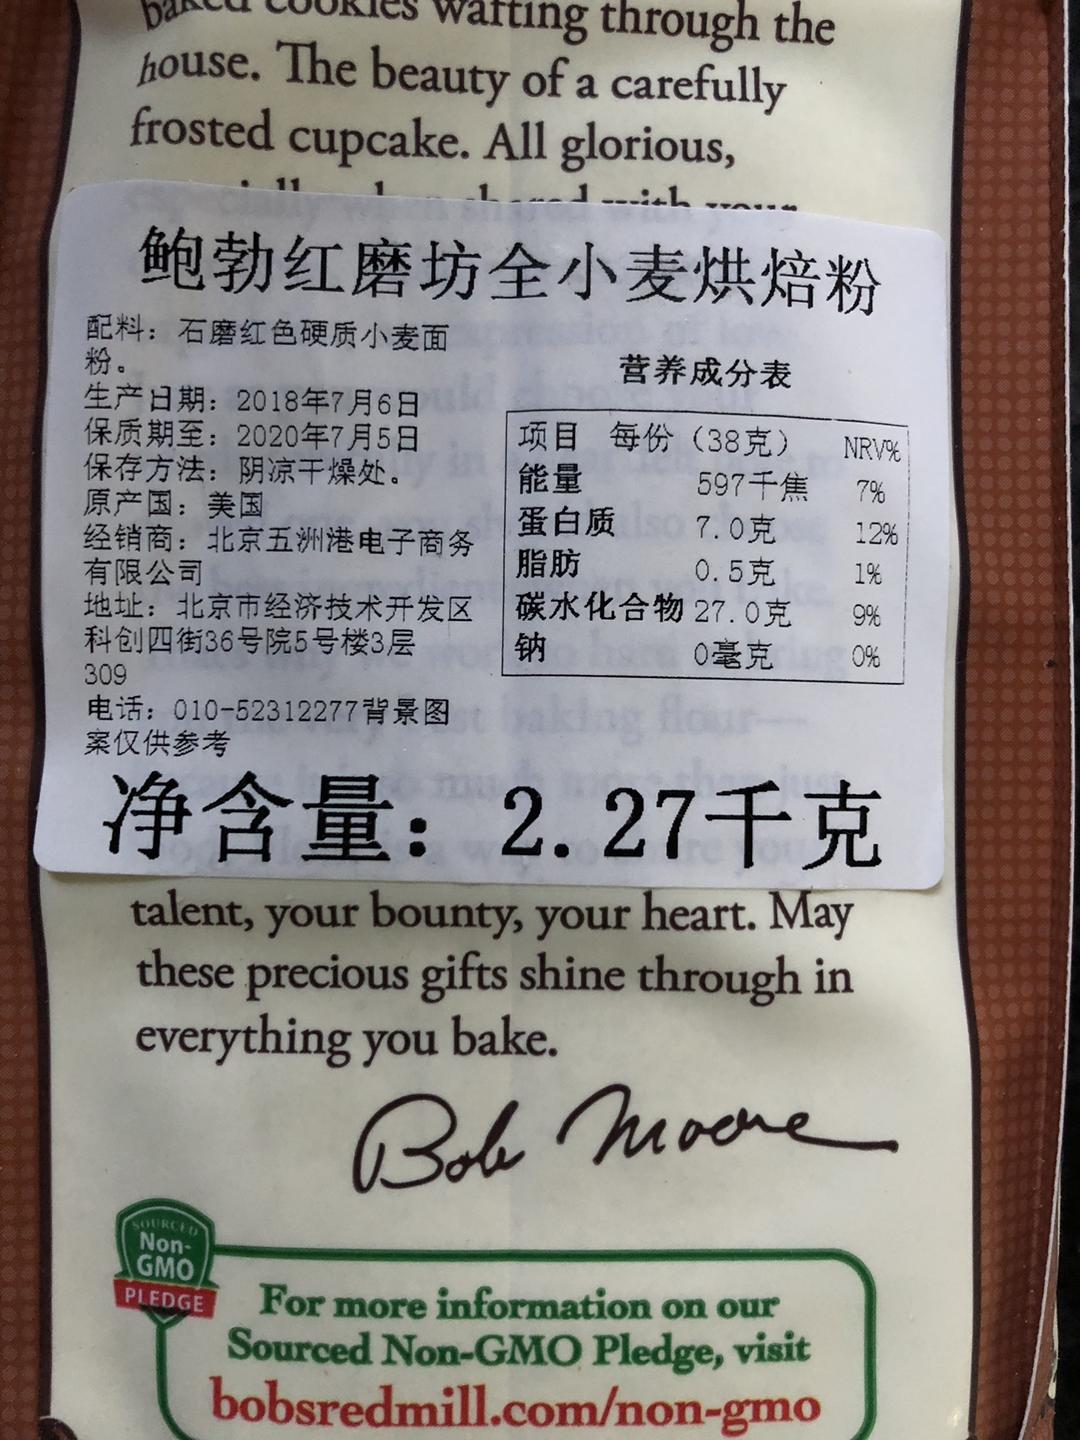 baked cookies wafting through the
house. The beauty of a carefully
frosted cupcake. All glorious,
especially when shared with your
鲍勃红磨坊全小麦烘焙粉
配料：石磨红色硬质小麦面
粉。
生产日期：2018年7月6日
保质期至：2020年7月5日
保存方法：阴凉干燥处。
原产国：美国
经销商：北京五洲港电子商务
有限公司
地址：北京市经济技术开发区
科创四街36号院5号楼3层
309
电话：010-52312277背景图
案仅供参考
营养成分表
项目 每份（38克） NRV%
能量 597千焦 7%
蛋白质 7.0克 12%
脂肪 0.5克 1%
碳水化合物 27.0克 9%
钠 0毫克 0%
净含量：2.27千克
talent, your bounty, your heart. May
these precious gifts shine through in
everything you bake.
Bob Moore
SOURCED
Non-
GMO
PLEDGE
For more information on our
Sourced Non-GMO Pledge, visit
bobsredmill.com/non-gmo